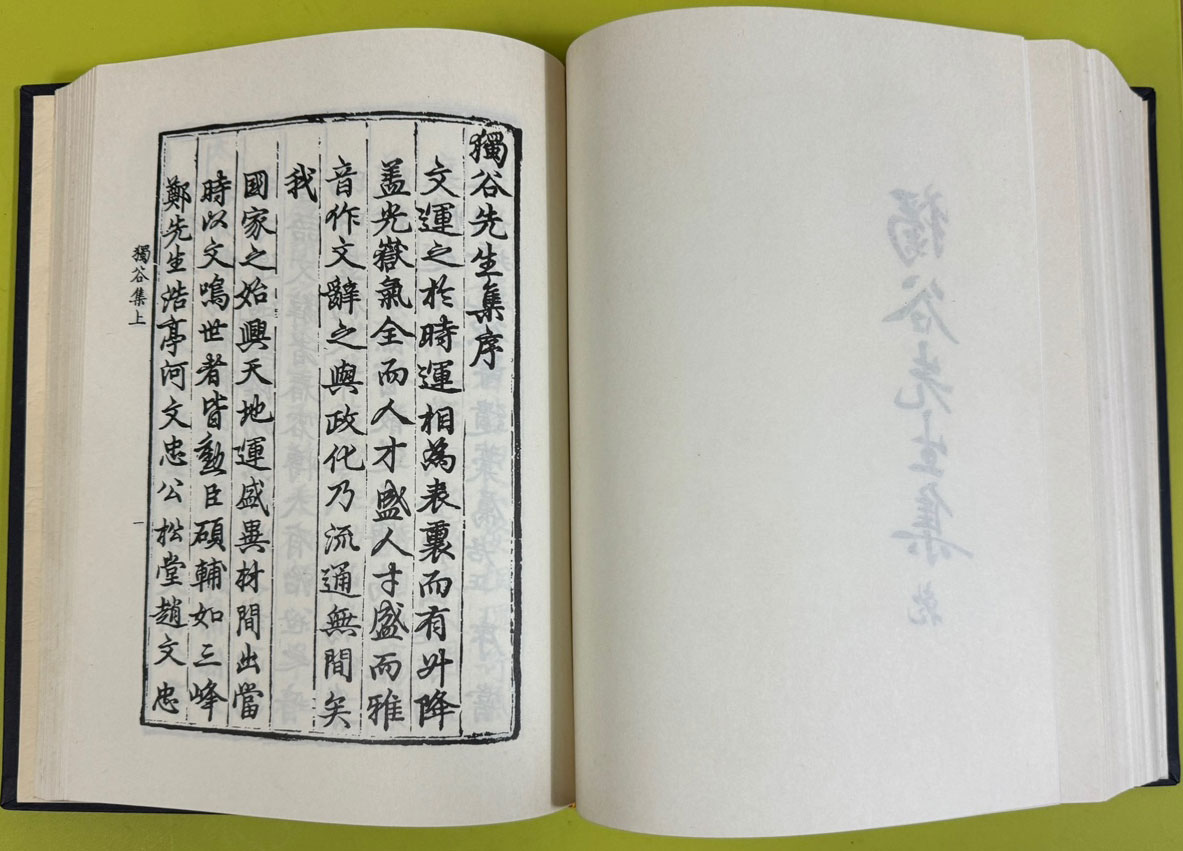 獨谷先生集序
文運之於時運相爲表裏而有升降
盖光嶽氣全而人才盛人才盛而雅
音作文辭之與政化乃流通無間矣
我
國家之始興天地運盛異材間出當
時以文鳴世者皆勳臣碩輔如三峰
鄭先生浩亭河文忠公松堂趙文忠
獨谷集上
一
獨谷先生集